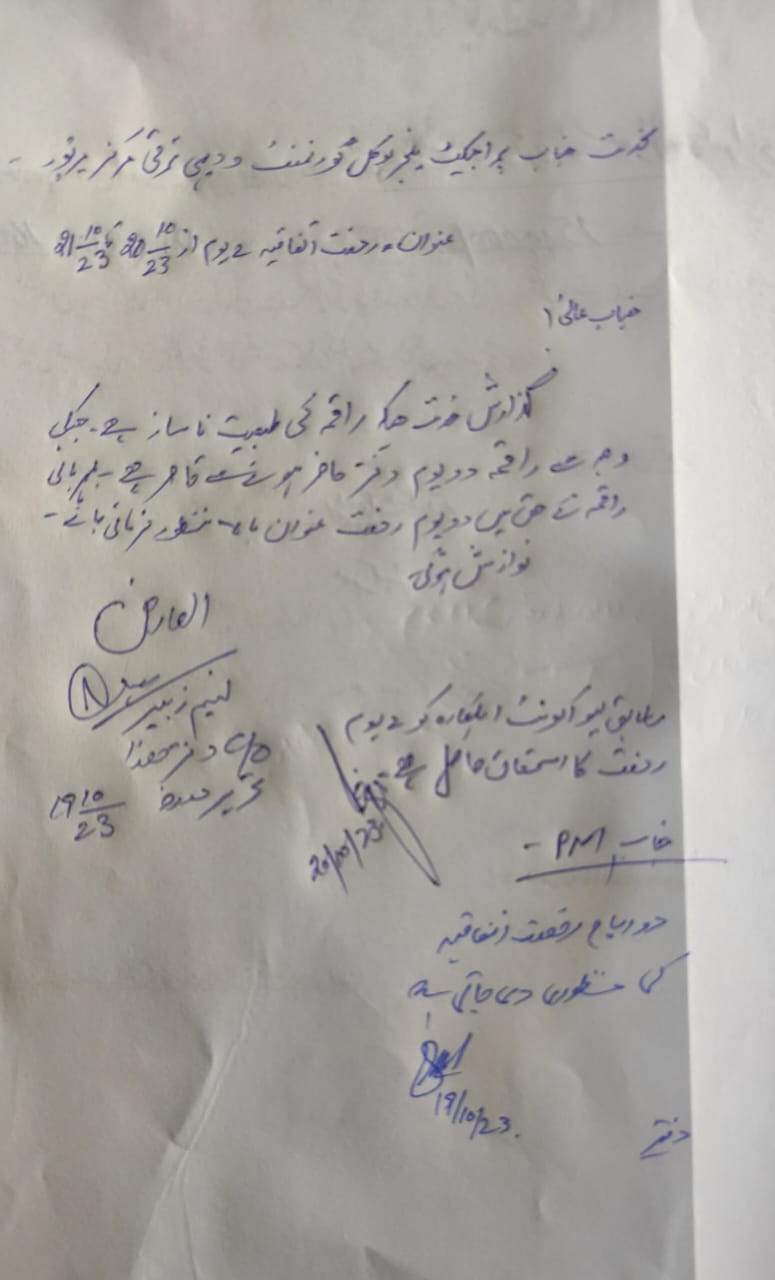 بخدمت جناب پراجیکٹ منیجر لوکل گورنمنٹ و دیہی ترقی مرکز میرپور -
عنوان:- رخصت اتفاقیہ 2 یوم از 20 10/23 تا 21 10/23
جناب عالیٰ!
گذارش خدمت ہیکہ راقمہ کی طبیعت ناساز ہے - جسکی
وجہ سے راقمہ دو یوم دفتر حاضر ہونے سے قاصر ہے - مہربانی
راقمہ کے حق میں دو یوم رخصت عنوان بالا منظور فرمائی جائے -
نوازش ہوگی
العارض
زبیر
دفتر ھذا
تحریر مورخہ 19 10/23
مطابق لیو اکاونٹ اہلکارہ کو 2 یوم
رخصت کا استحقاق حاصل ہے
20/10/23
جناب PM -
دو ایام رخصت اتفاقیہ
کی منظوری دی جاتی ہے
19/10/23.
دفتر